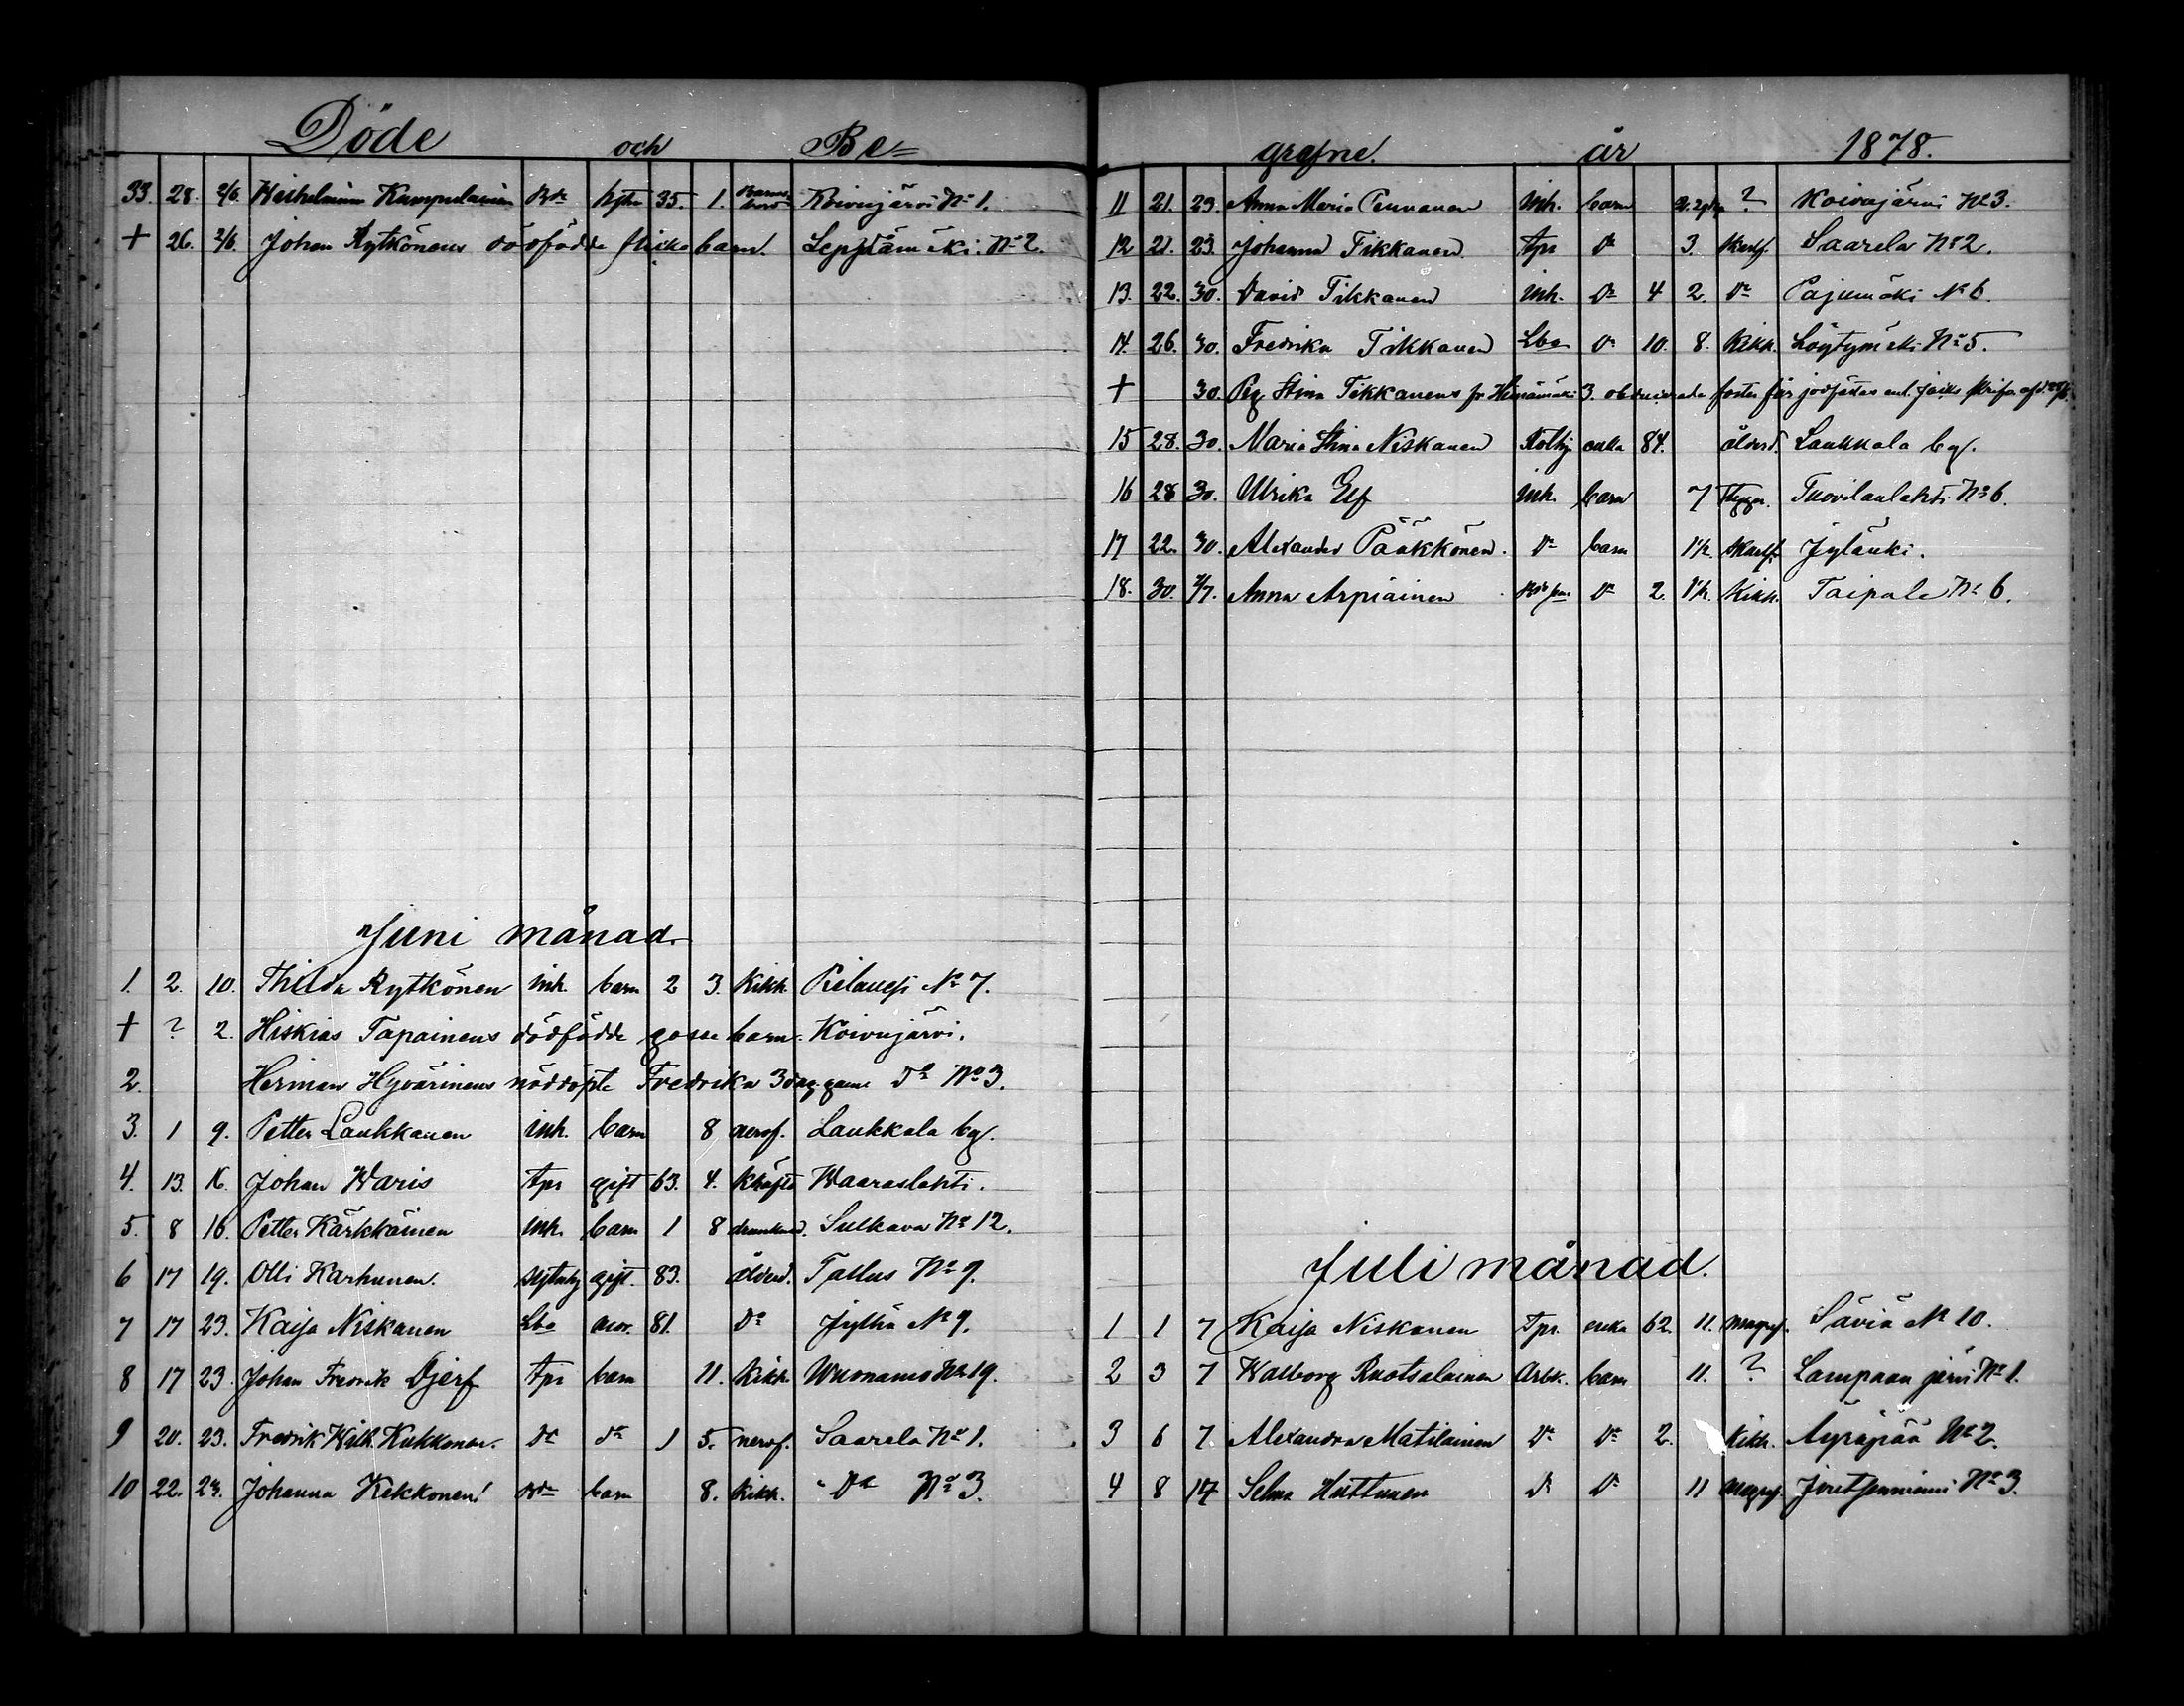 Döde och Be=
33. 28. 2/6. Wilhelmina Kumpulainen Bde hstr 35. 1. Barns- börd Koivujärvi No 1.
+ 26. 2/6. Johan Rytkönens dödfödde flicko barn. Leppämäki No 2.
Juni månad.
1. 2. 10. Thilda Rytkönen inh. barn 2 3. Kikh. Pielavesi No 7.
+ ? 2. Hiskias Tapainens dödfödde gosse barn. Koivujärvi.
2. Herman Hyvärinens nöddöpte Fredrika 3 dag. game Do No 3.
3. 1 9. Petter Laukkanen inh. barn 8 nervf. Laukkala by.
4. 13. 16. Johan Waris Tpr gift 63. 4. Waaraslahti.
5. 8 16. Petter Kärkkäinen inh. barn 1 8 Sulkava No 12.
6 17 19. Olli Karhunen. gift. 83. ålderd. Tallus No 9.
7 17 23. Kaija Niskanen Lbo 81. Do Jylhä No 9.
8 17 23. Johan Fredrik Djerf Tpr barn 11. Kikh. Wuonamo No 19.
9 20. 23. Fredrik Wilh. Kukkonen. Do Do 1 5. nervf. Saarela No 1.
10 22. 23. Johanna Kekkonen Bde barn 8. Kikh. Do No 3.
grafne. år 1878.
11 21. 23. Anna Maria Pennanen inh. barn ? Koivujärvi No 3.
12 21. 23. Johanna Tikkanen Tpr Do 3. Skarlf. Saarela No 2.
13. 22. 30. David Tikkanen inh. Do 4 2. Do Pajumäki No 6.
14. 26. 30. Fredrika Tikkanen Lbo Do 10. 8. Kikh. Löytymäki No 5.
+ 30. Pig. Stina Tikkanens fr. Heinämäki 3. obducerade foster
15 28. 30. Maria Stina Niskanen enka 84. ålderd. Laukkala by.
16 28 30. Ulrika Elf inh. barn 7 Tuovilanlahti No 6.
17 22. 30. Alexander Pääkkönen. Do barn 1 1/2. Skarlf. Jylänki.
18. 30. 7/7. Anna Arpiainen Do 2. 1 1/2. Kikh. Taipale No 6.
Juli månad.
1 1 7 Kaija Niskanen Tpr. enka 62. 11. Magref. Säviä No 10.
2 3 7 Walborg Ruotsalainen Arbk. barn 11. ? Lampaanjärvi No 1.
3 6 7. Alexandra Matilainen Do Do 2. Kikh. Äyräpää No 2.
4 8 14 Selma Huttunen Do Do 11 Magref. Joutsenniemi No 3.